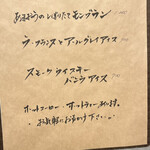 あまおうのしぼりたてモンブラン
ラ・フランスとアールグレイアイス
スモークウイスキー
バニラアイス
ホットコーヒー・ホットティー あります。
お気軽にお声かけ下さい